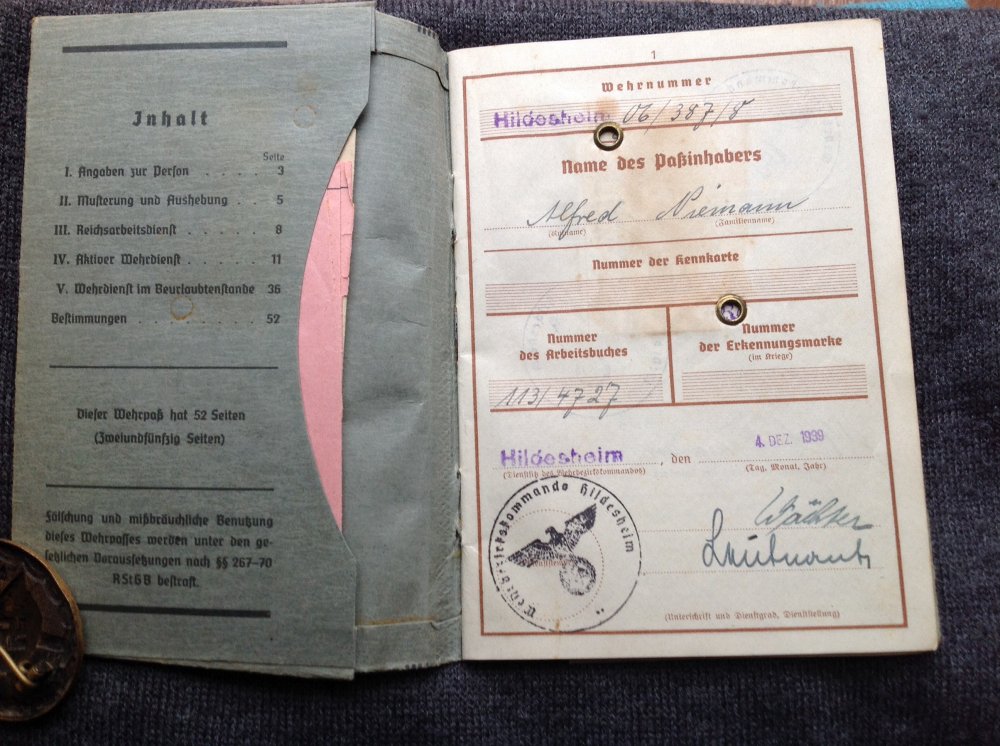 Inhalt
Seite
I. Angaben zur Person . . . . . 3
II. Musterung und Aushebung . . 5
III. Reichsarbeitsdienst . . . . . 8
IV. Aktiver Wehrdienst . . . . . 11
V. Wehrdienst im Beurlaubtenstande 36
Bestimmungen . . . . . . . 52
Dieser Wehrpaß hat 52 Seiten
(Zweiundfünfzig Seiten)
Fälschung und mißbräuchliche Benutzung
dieses Wehrpasses werden unter den ge-
setzlichen Voraussetzungen nach §§ 267–70
RStGB bestraft.
1
Wehrnummer
Hildesheim 06/387/8
Name des Paßinhabers
Alfred Niemann
(Rufname) (Familienname)
Nummer der Kennkarte
Nummer
des Arbeitsbuches
113/4727
Nummer
der Erkennungsmarke
(im Kriege)
Hildesheim, den 4. DEZ. 1939
(Dienstsitz des Wehrbezirkskommandos) (Tag, Monat, Jahr)
Wehrbezirkskommando Hildesheim
Leutnant
(Unterschrift und Dienstgrad, Dienststellung)